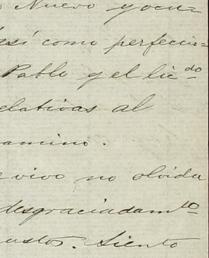 Nuevo y ocu-
así como perfeccio-
Pablo y el lic.do
elativas al
amino.
vivo no olvida
desgraciadamto
ustos. Siento